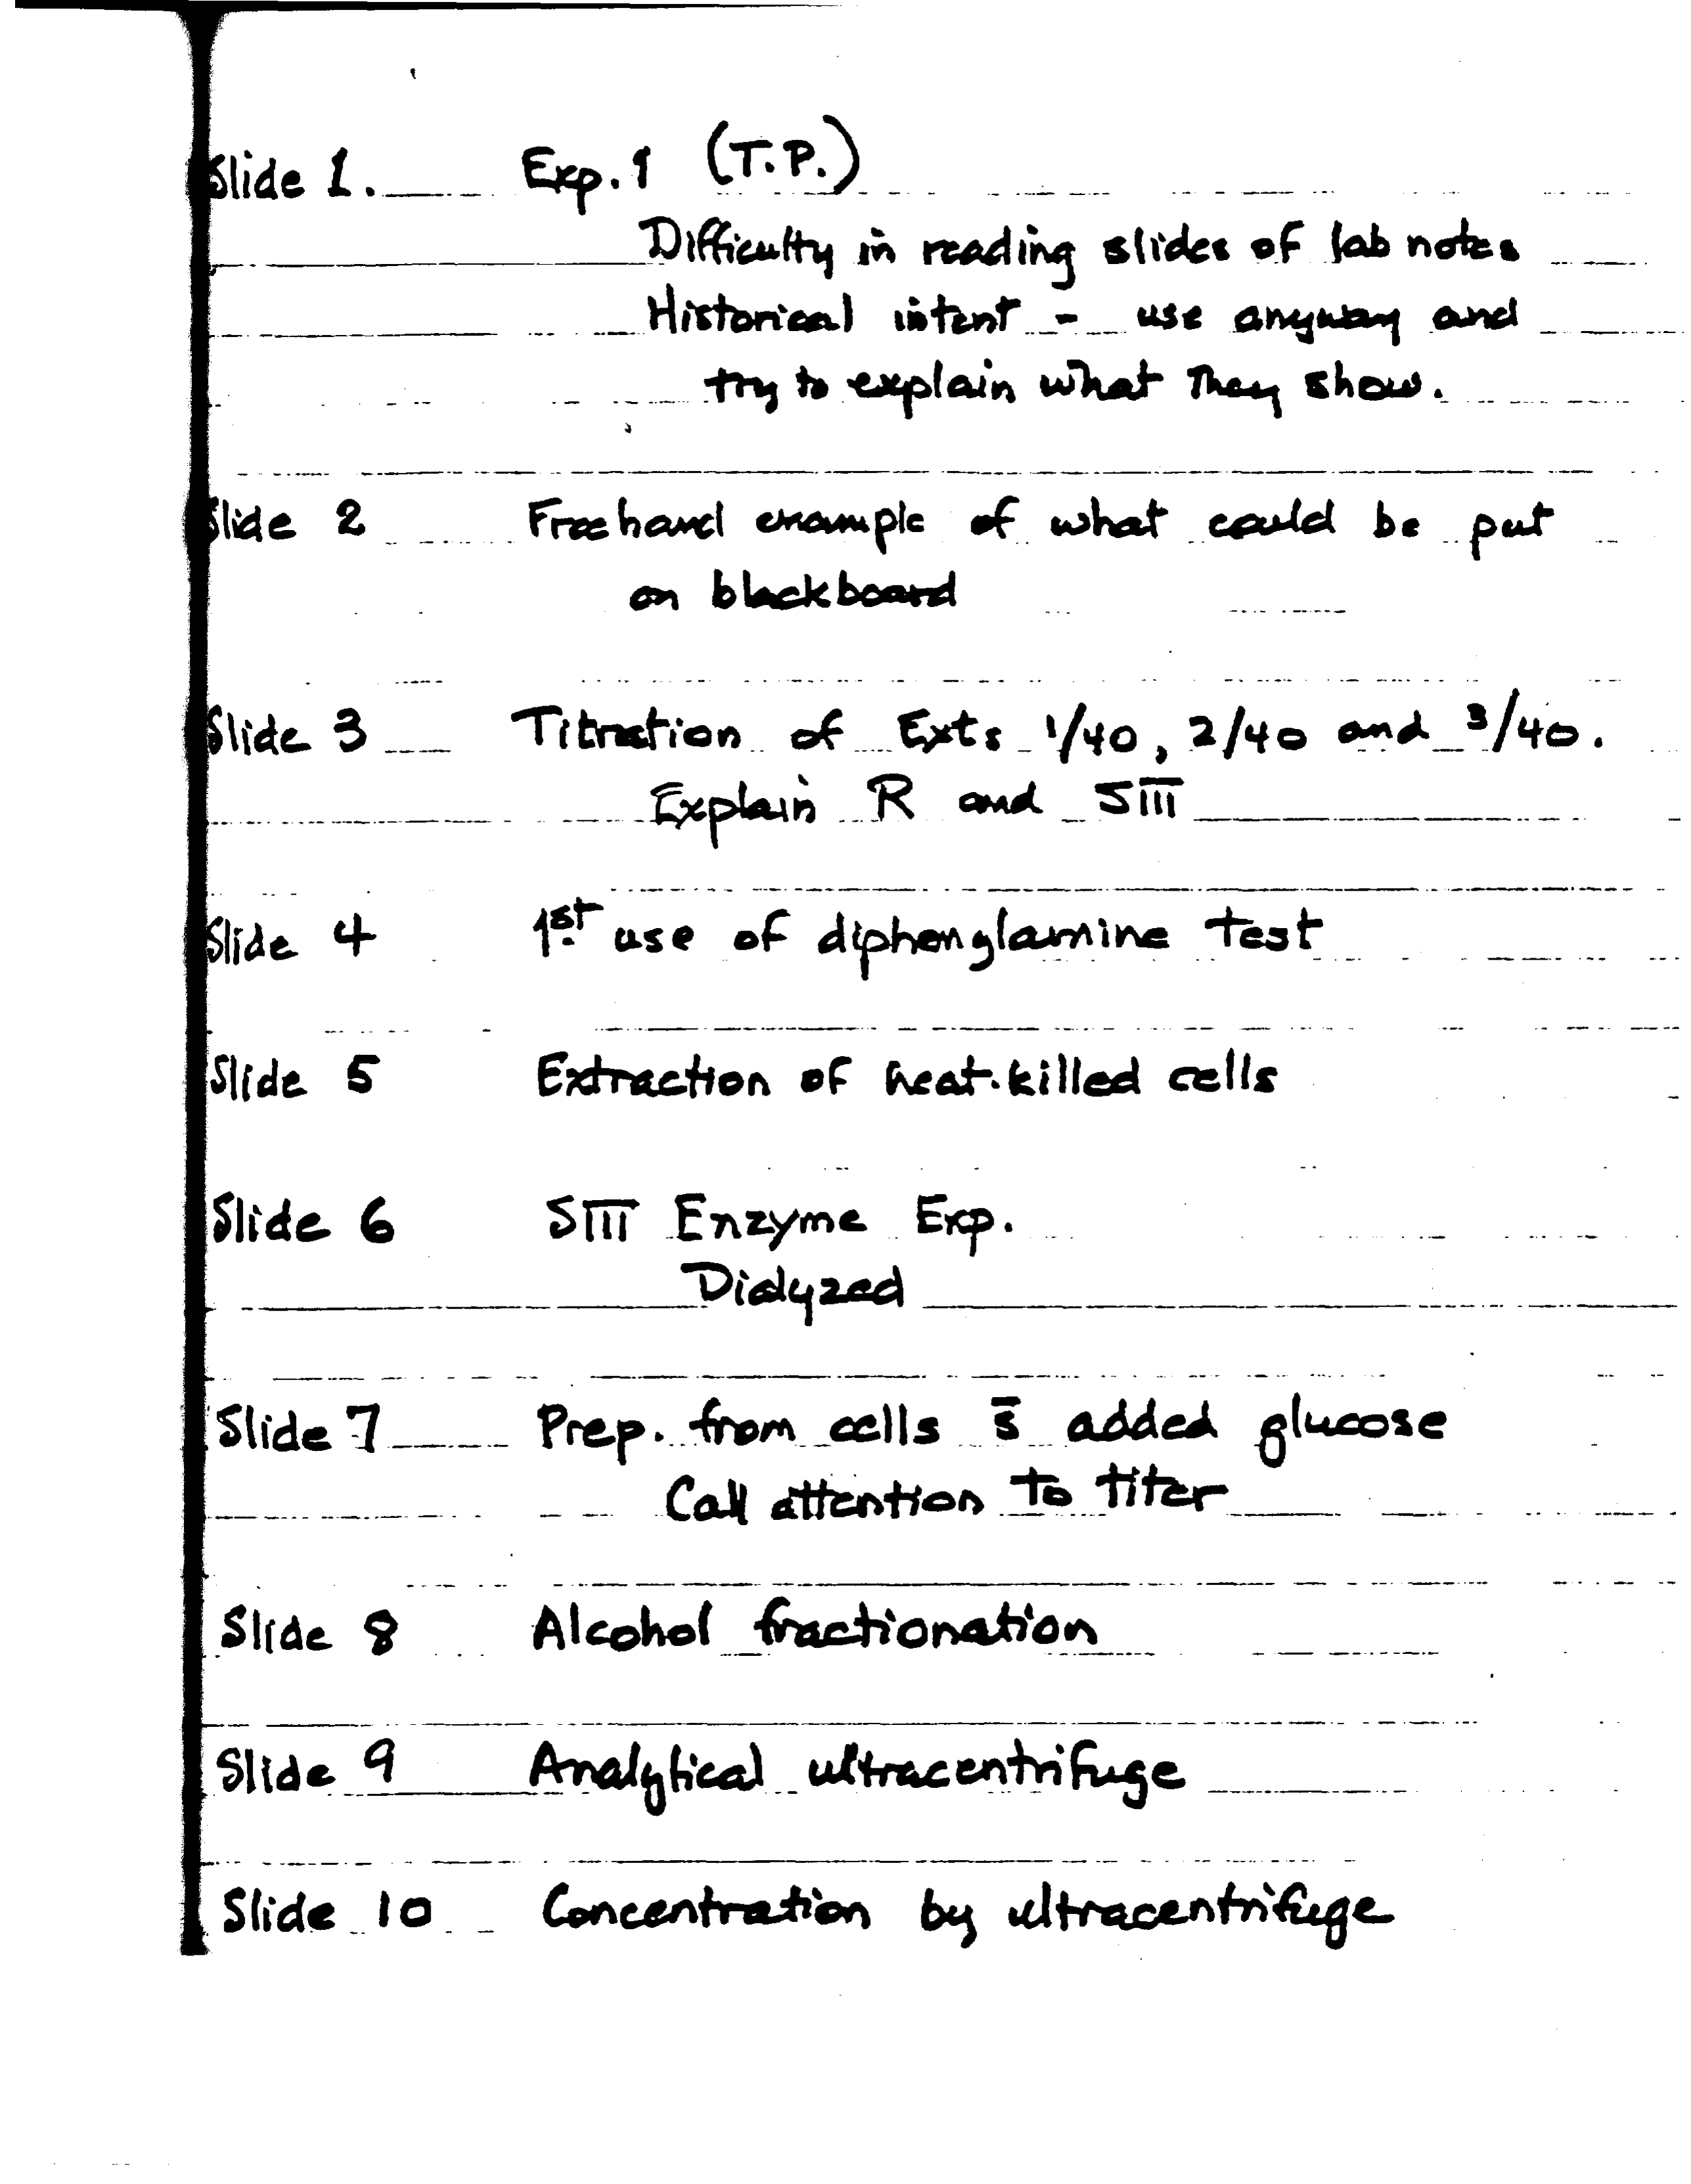 Slide 1. Exp. 1 (T.P.)
Difficulty in reading slides of lab notes
Historical intent - use anyway and
try to explain what they show.
Slide 2 Freehand example of what could be put
on blackboard
Slide 3 Titration of Exts 1/40, 2/40 and 3/40.
Explain R and SIII
Slide 4 1st use of diphenylamine test
Slide 5 Extraction of heat-killed cells
Slide 6 SIII Enzyme Exp.
Dialyzed
Slide 7 Prep. from cells s̄ added glucose
Call attention to titer
Slide 8 Alcohol fractionation
Slide 9 Analytical ultracentrifuge
Slide 10 Concentration by ultracentrifuge